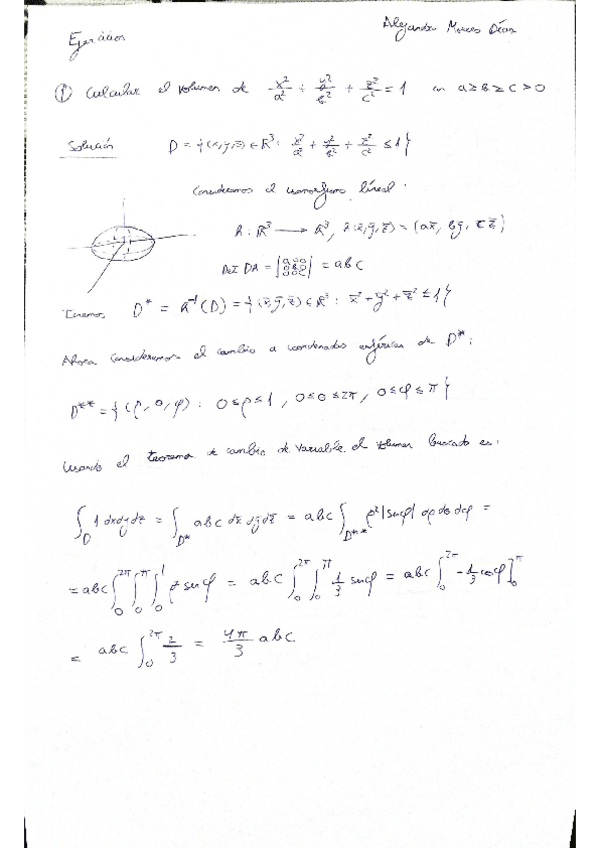 Alejandro Moreno Díaz
Ejercicios
① Calcular el volumen de x²/a² + y²/b² + z²/c² = 1 con a ≥ b ≥ c > 0
Solución D = {(x,y,z) ∈ ℝ³: x²/a² + y²/b² + z²/c² ≤ 1}
Consideramos el isomorfismo lineal:
A: ℝ³ → ℝ³, A(x̄,ȳ,z̄) = (ax̄, bȳ, cz̄)
Det DA = |a 0 0; 0 b 0; 0 0 c| = abc
Tenemos D* = A⁻¹(D) = {(x̄,ȳ,z̄) ∈ ℝ³: x̄² + ȳ² + z̄² ≤ 1}
Ahora consideramos el cambio a coordenadas esféricas de D*:
D** = {(ρ, θ, φ): 0 ≤ ρ ≤ 1, 0 ≤ θ ≤ 2π, 0 ≤ φ ≤ π}
Usando el teorema de cambio de variable el volumen buscado es:
∫_D 1 dxdydz = ∫_D* abc dx̄ dȳ dz̄ = abc ∫_D** ρ²|senφ| dρ dθ dφ =
= abc ∫₀^2π ∫₀^π ∫₀^1 ρ² senφ = abc ∫₀^2π ∫₀^π 1/3 senφ = abc ∫₀^2π -1/3 cosφ]₀^π
= abc ∫₀^2π 2/3 = 4π/3 abc